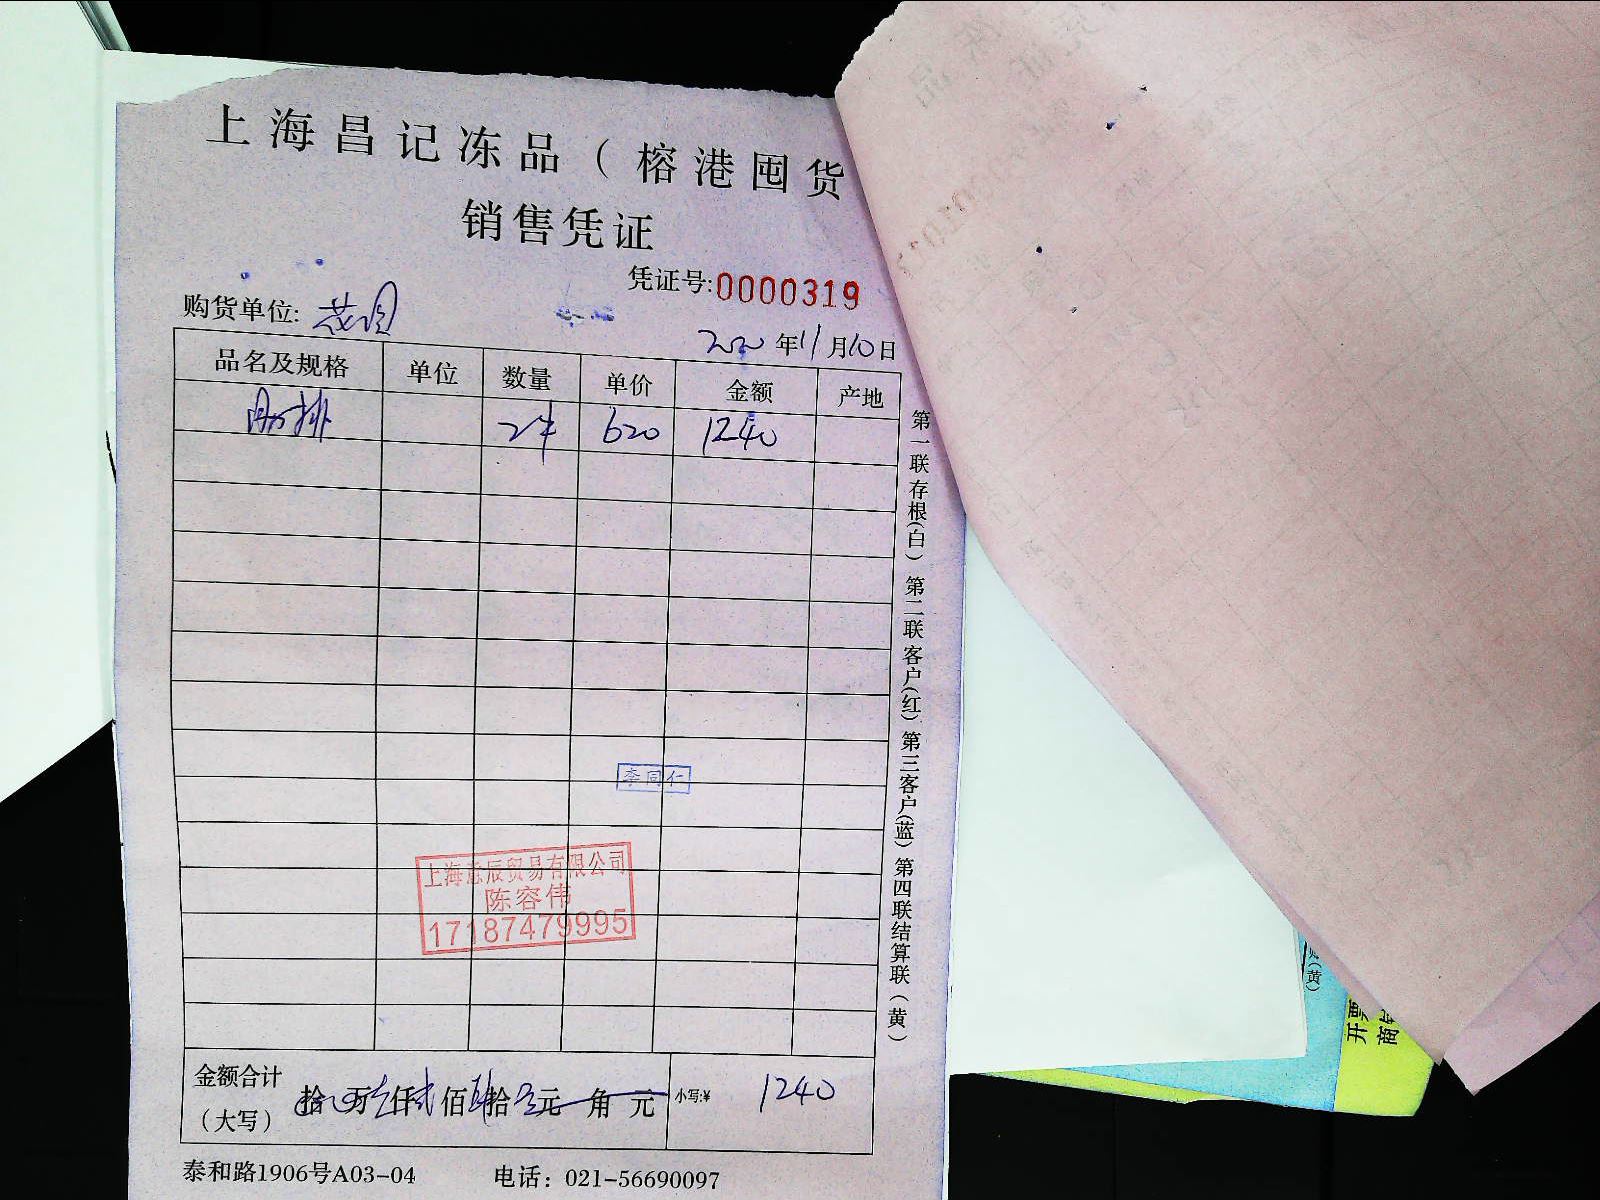 上海昌记冻品（榕港囤货
销售凭证
凭证号:0000319
购货单位:
2020年11月10日
品名及规格 单位 数量 单价 金额 产地
肋排 2件 620 1240
第一联存根(白) 第二联客户(红) 第三客户(蓝) 第四联结算联(黄)
李同仁
上海意辰贸易有限公司
陈容伟
17187479995
金额合计
（大写）
拾 万 仟 贰 佰 肆 拾 元 角 元 小写:¥ 1240
泰和路1906号A03-04 电话：021-56690097
(黄)
开票